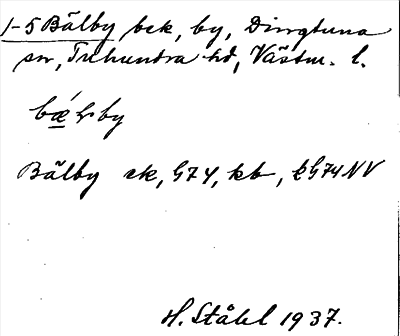 1-5 Bälby bsk, by, Dingtuna
sn, Tuhundra hd, Västm. l.
bǽlby
Bälby ek, G74, kb, kG74NV
H. Ståhl 1937.